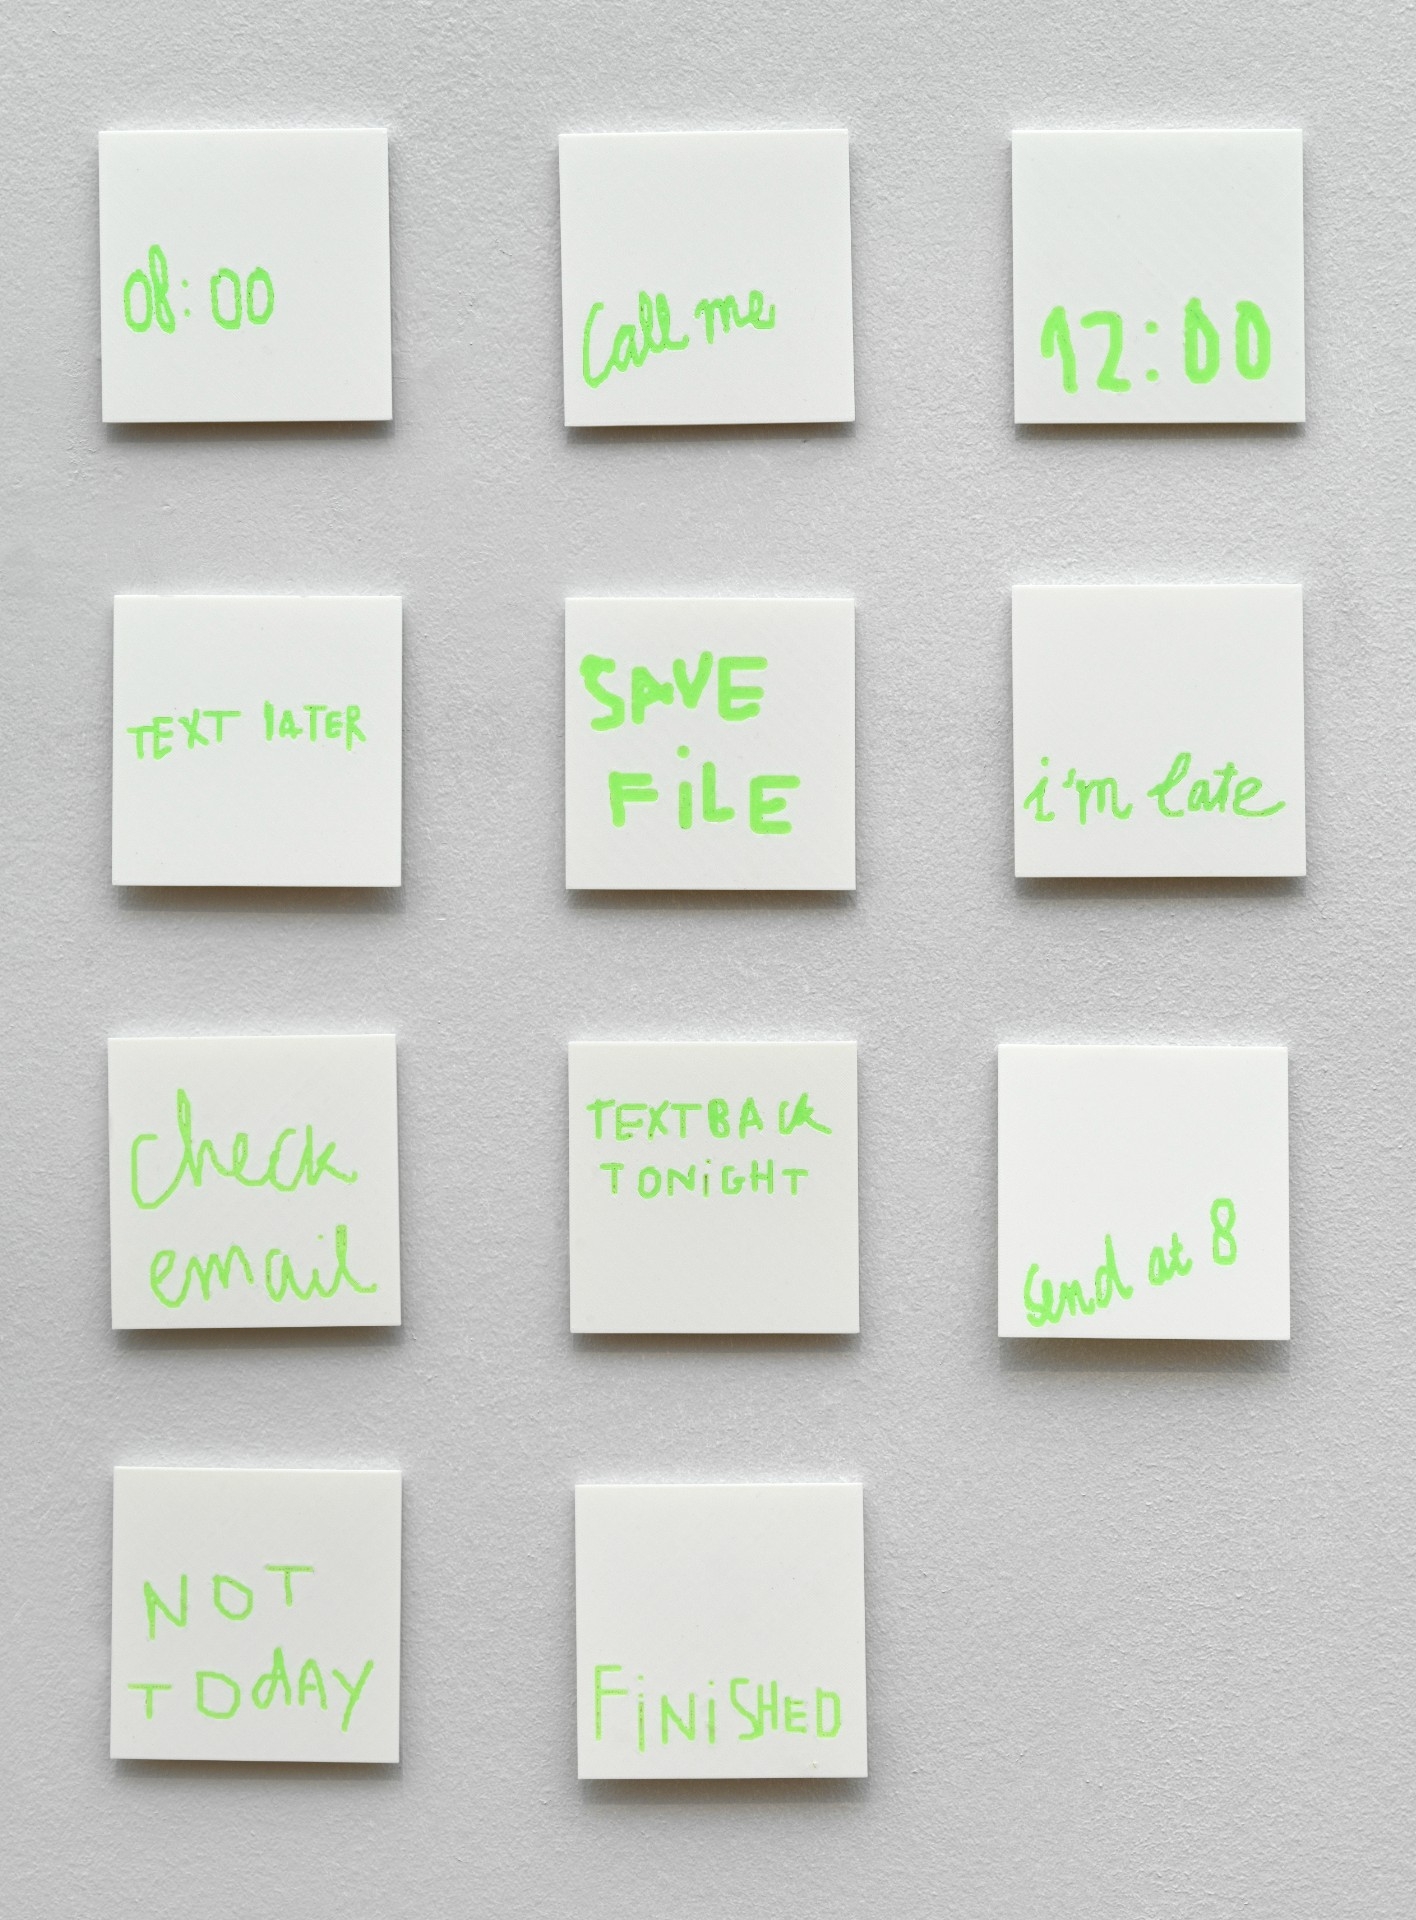 08:00
Call me
12:00
TEXT lATER
SAVE
FiLE
i'm late
check
email
TEXT BACk
TONiGHT
send at 8
NOT
TOdAY
FiNiSHED